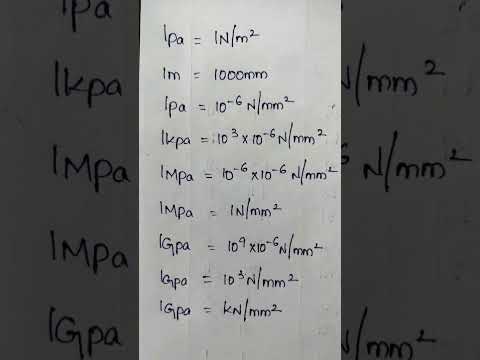 1pa = 1N/m²
1m = 1000mm
1pa = 10⁻⁶ N/mm²
1kpa = 10³ x 10⁻⁶ N/mm²
1Mpa = 10⁻⁶ x 10⁻⁶ N/mm²
1Mpa = 1N/mm²
1Gpa = 10⁹ x 10⁻⁶ N/mm²
1Gpa = 10³ N/mm²
1Gpa = kN/mm²